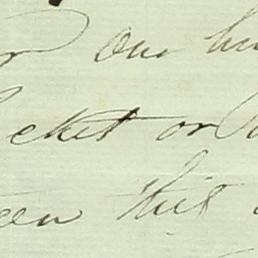 or one hu
ocket or
een this